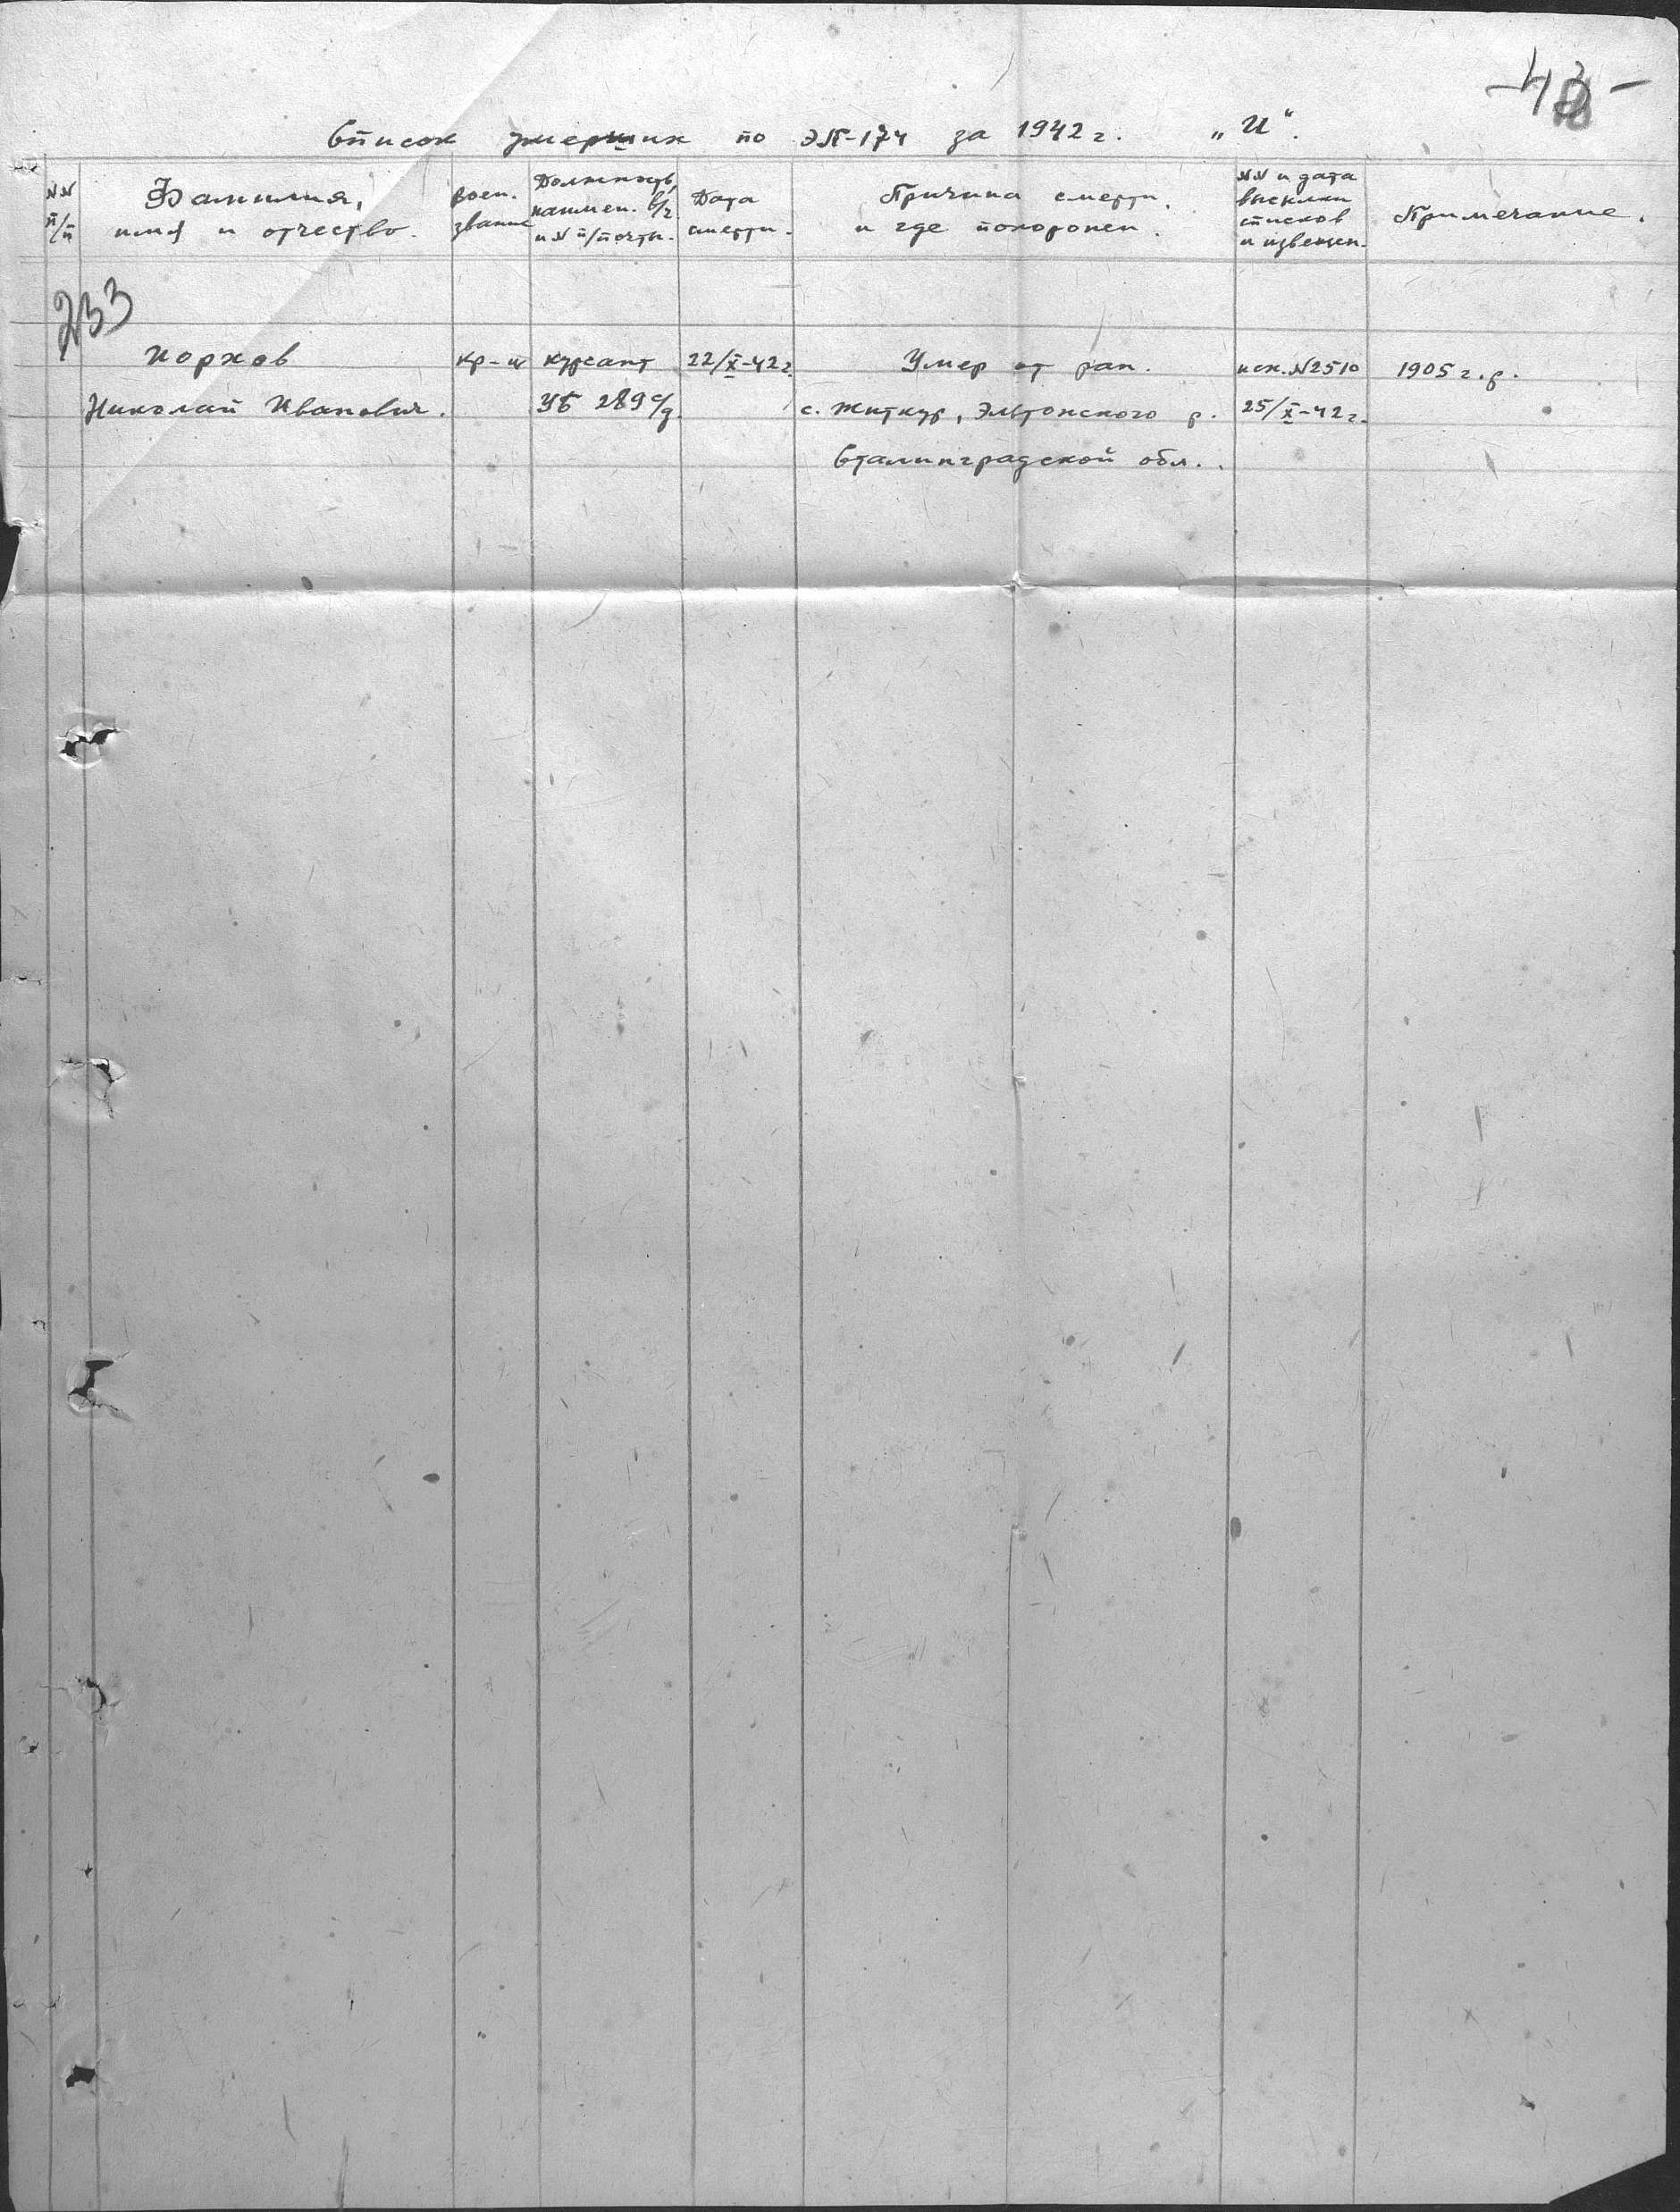 -43-
Список умерших по ЭП-174 за 1942 г. „И“.
NN п/п
Фамилия, имя и отчество.
Воен. звание
Должность, наимен. в/ч и N п/почты.
Дата смерти.
Причина смерти, и где похоронен.
NN и дата высылки списков и извещен.
Примечание.
233
Иорхов кр-ц курсант 22/X-42г. Умер от ран. исх. N2510 1905 г.р.
Николай Иванович. УБ 289 с/д. с. Житкур, Эльтонского р. 25/X-42г.
Сталинградской обл.